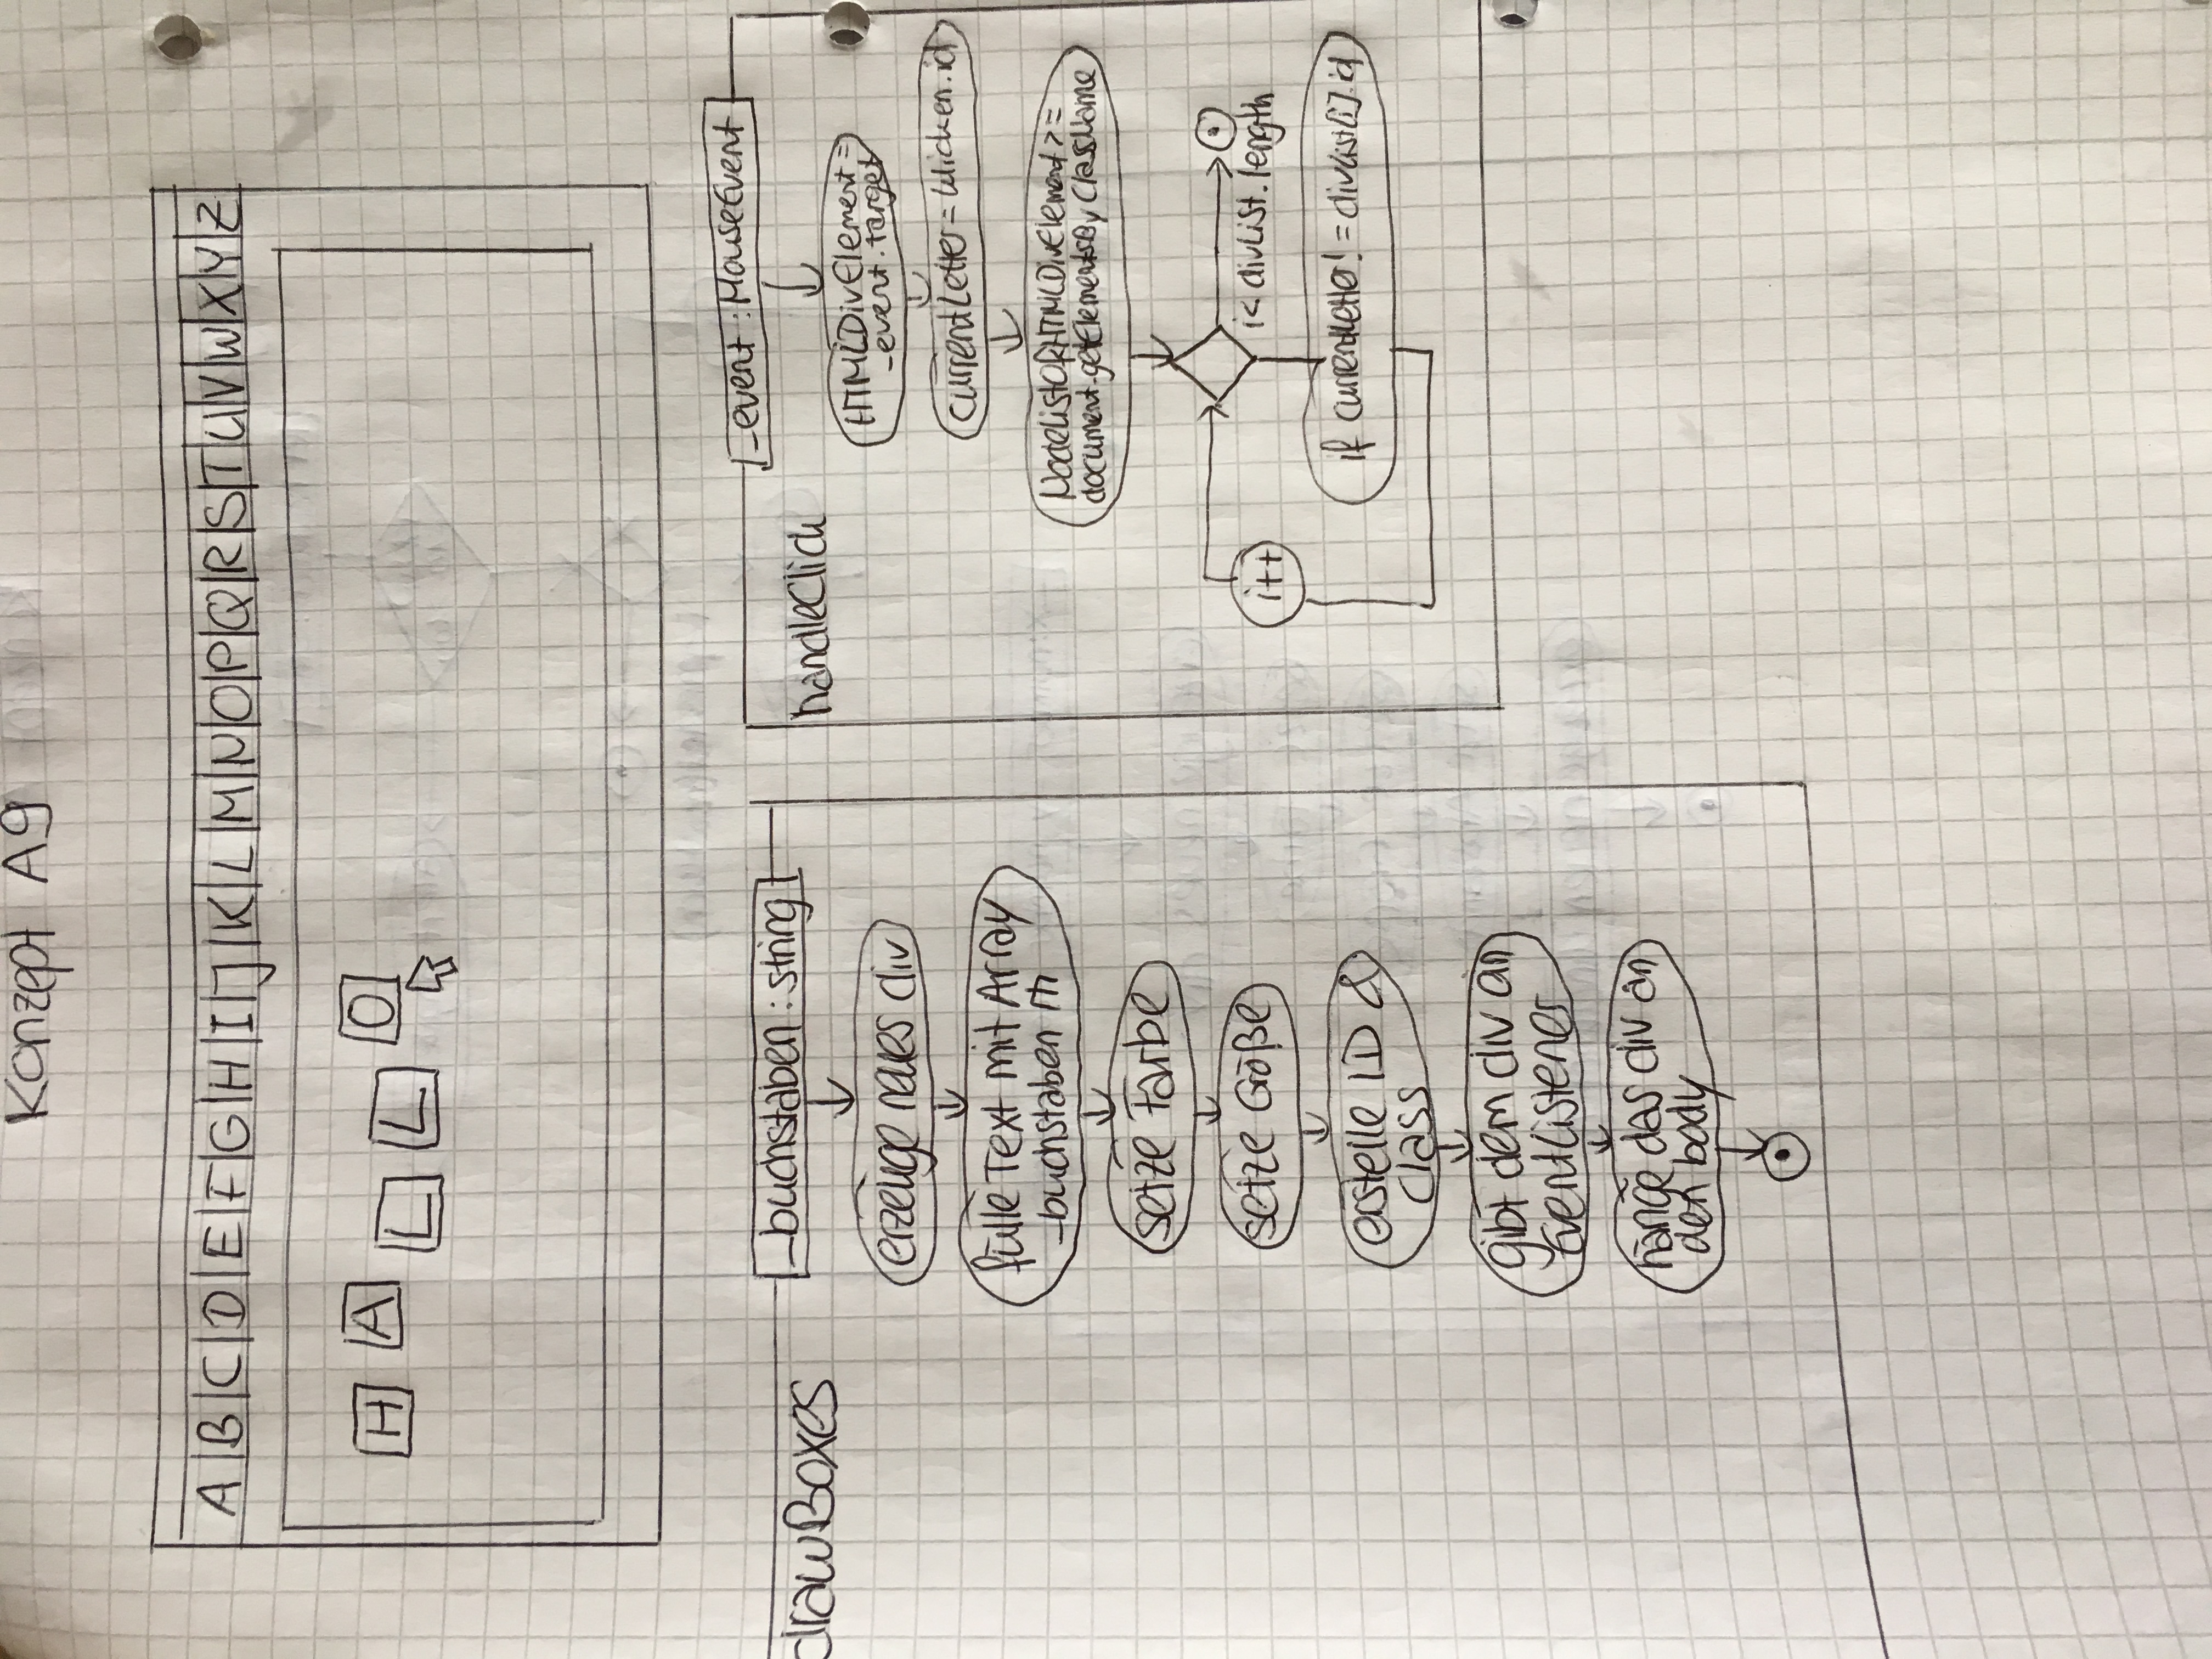 Konzept A9
A B C D E F G H I J K L M N O P Q R S T U V W X Y Z
H A L L O
drawBoxes
_buchstaben : string
erzeuge neues div
fülle Text mit Array
_buchstaben
setze Farbe
setze Größe
erstelle ID &
Class
gibt dem div an
EventListener
hänge das div an
den body
handleClick
_event : MouseEvent
HTMLDivElement =
_event.target
currentLetter = klicken.id
NodeListOf<HTMLDivElement> =
document.getElementsByClassName
i < divList.length
i++
if currentLetter! = divList[i].id